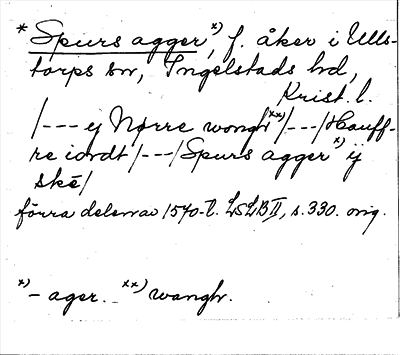 * Spurs agger x), f. åker i Ulls-
torps sn, Ingelstads hd,
Krist. l.
/--- ej Nørre wongh xx)/---/Hauff-
re iordt/---/Spurs agger x) ij
ské/
förra delen av 1570-t. LSLB II, s. 330. orig.
x) - ager. xx) wangh.